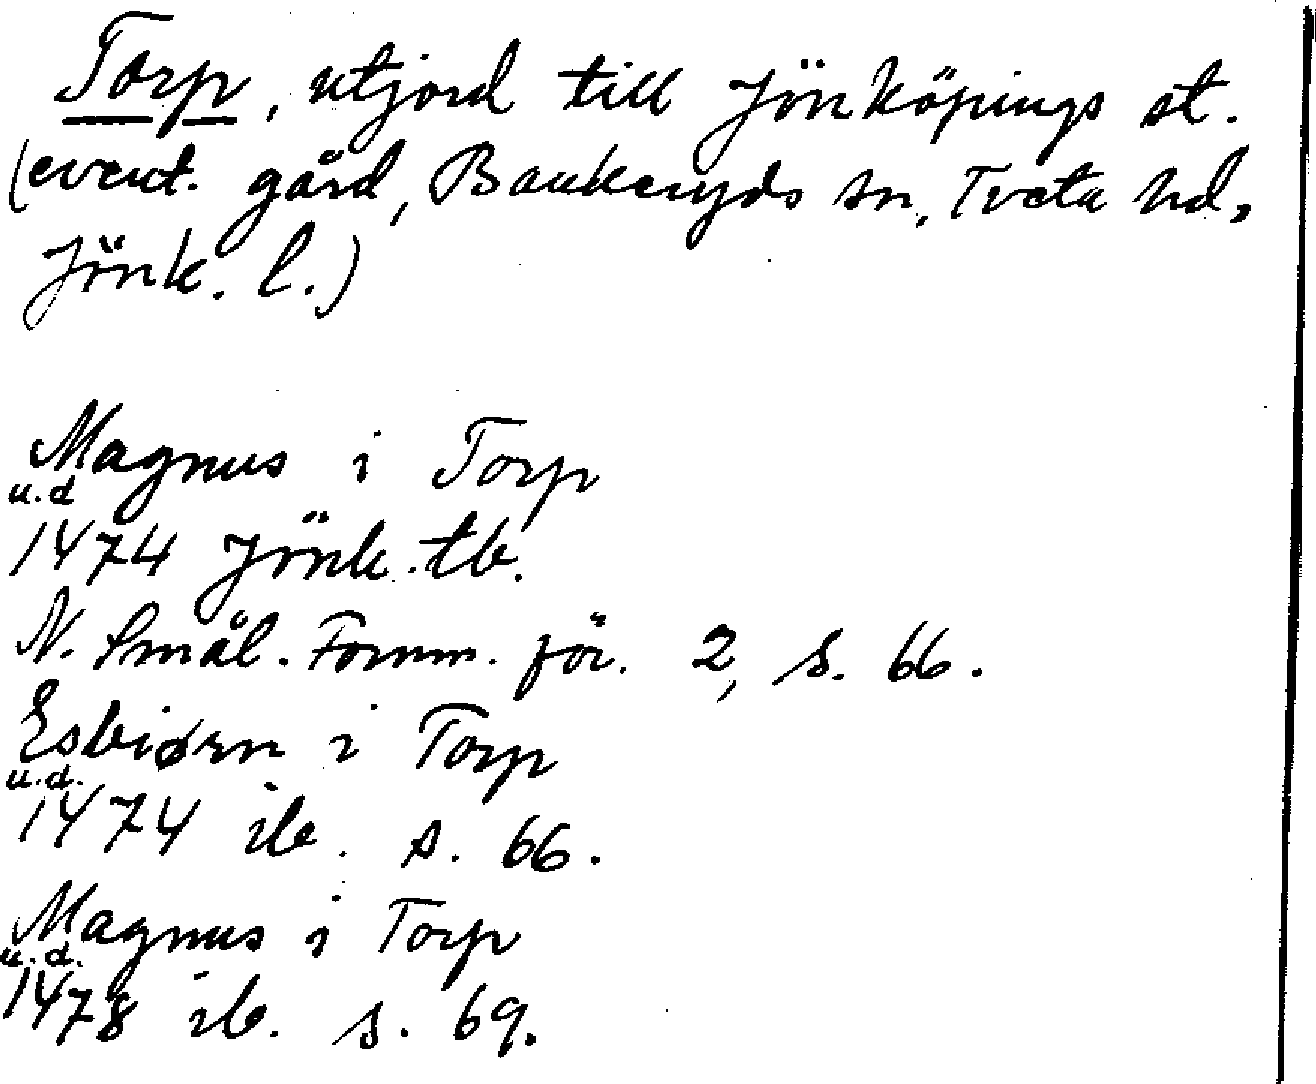 Torp, utjord till Jönköpings st.
(event. gård, Bankeryds sn, Tveta hd,
Jönk. l.)
Magnus i Torp
u.d
1474 Jönk. tb.
N. Smål. Fornm.för. 2, s. 66.
Esbiørn i Torp
u.d.
1474 ib. s. 66.
Magnus i Torp
u.d.
1478 ib. s. 69.